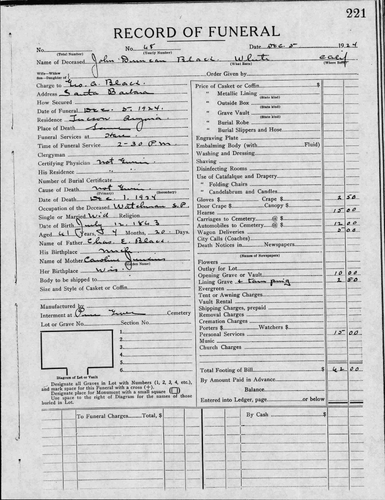 221
RECORD OF FUNERAL
No. No. 68 Date Dec 5 1924
(Total Number) (Yearly Number)
Name of Deceased John Duncan Black White Calif
Order Given by
Charge to Geo. A. Black
Address Santa Barbara
How Secured
Date of Funeral Dec. 5, 1924.
Residence Tucson Arizona
Place of Death
Funeral Services at Here
Time of Funeral Service 2-30 P.M.
Clergyman
Certifying Physician not given
His Residence
Number of Burial Certificate
Cause of Death not given
Date of Death Dec 1, 1924
Occupation of the Deceased Watchman S.P.
Single or Married Wid Religion
Date of Birth July 12, 1863
Aged 61 Years, 4 Months 20 Days
Name of Father Chas. E. Black
His Birthplace
Name of Mother Caroline
Her Birthplace Wis.
Body to be shipped to
Size and Style of Casket or Coffin
Manufactured by
Interment at Cemetery
Lot or Grave No. Section No.
1
2
3
4
5
6
Diagram of Lot or Vault
Designate all Graves in Lot with Numbers (1, 2, 3, 4, etc.), and mark space for this Funeral with a cross (+).
Designate place for Monument with a small square
Use space to right of Diagram for the names of those buried in Lot.
Price of Casket or Coffin
" Metallic Lining
" Outside Box
" Grave Vault
" Burial Robe
" Burial Slippers and Hose
Engraving Plate
Embalming Body (with Fluid)
Washing and Dressing
Shaving
Disinfecting Rooms
Use of Catafalque and Drapery
" Folding Chairs
" Candelabrum and Candles
Gloves $ Crape $ 2 50
Door Crape $ Canopy $
Hearse 15 00
Carriages to Cemetery @ $
Automobiles to Cemetery @ $ 12 00
Wagon Deliveries 5 00
City Calls (Coaches)
Death Notices in Newspapers
(Names of Newspapers)
Flowers
Outlay for Lot
Opening Grave or Vault 10 00
Lining Grave 2 50
Evergreen
Tent or Awning Charges
Vault Rental
Shipping Charges, prepaid
Removal Charges
Cremation Charges
Porters $ Watchers $
Personal Services 15 00
Music
Church Charges
Total Footing of Bill $ 62 00
By Amount Paid in Advance
Balance
Entered into Ledger, page or below.
To Funeral Charges Total, $
By Cash $